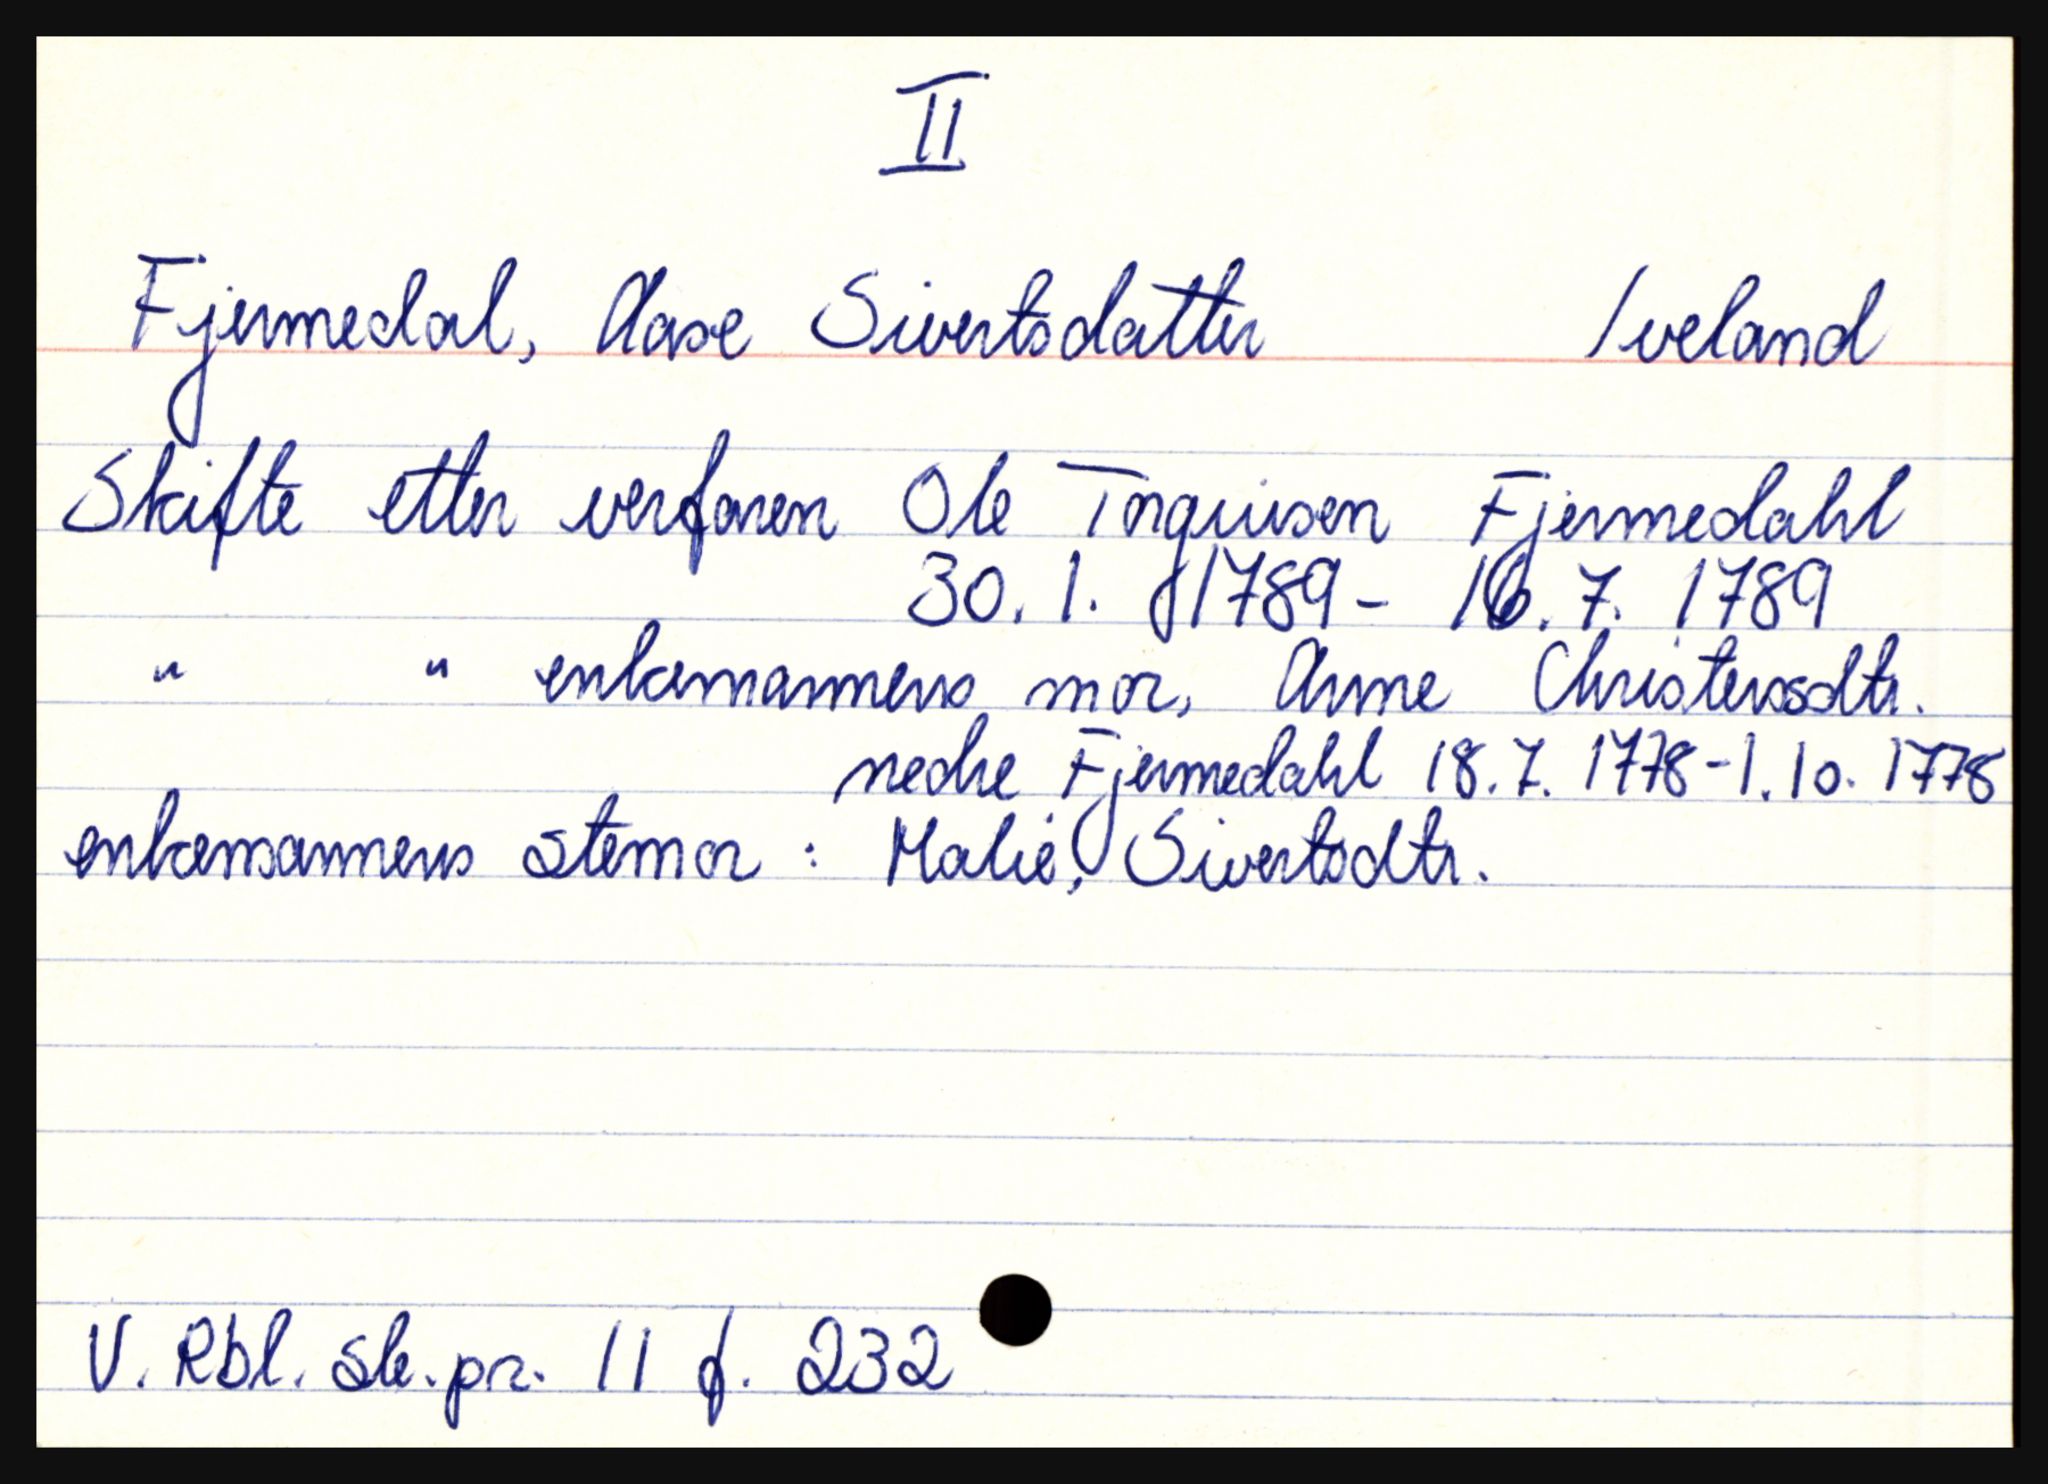 II
Fjermedal, Aase Sivertsdatter Iveland
Skifte etter verfaren Ole Torguisen Fjermedahl
30. 1. 1789 - 16. 7. 1789
" " enkemannens mor, Anne Christenssdtr.
nedre Fjermedahl 18. 7. 1778 - 1. 10. 1778
enkemannens stemor : Malie, Sivertsdtr.
V. Rbl. sk. pr. 11 f. 232